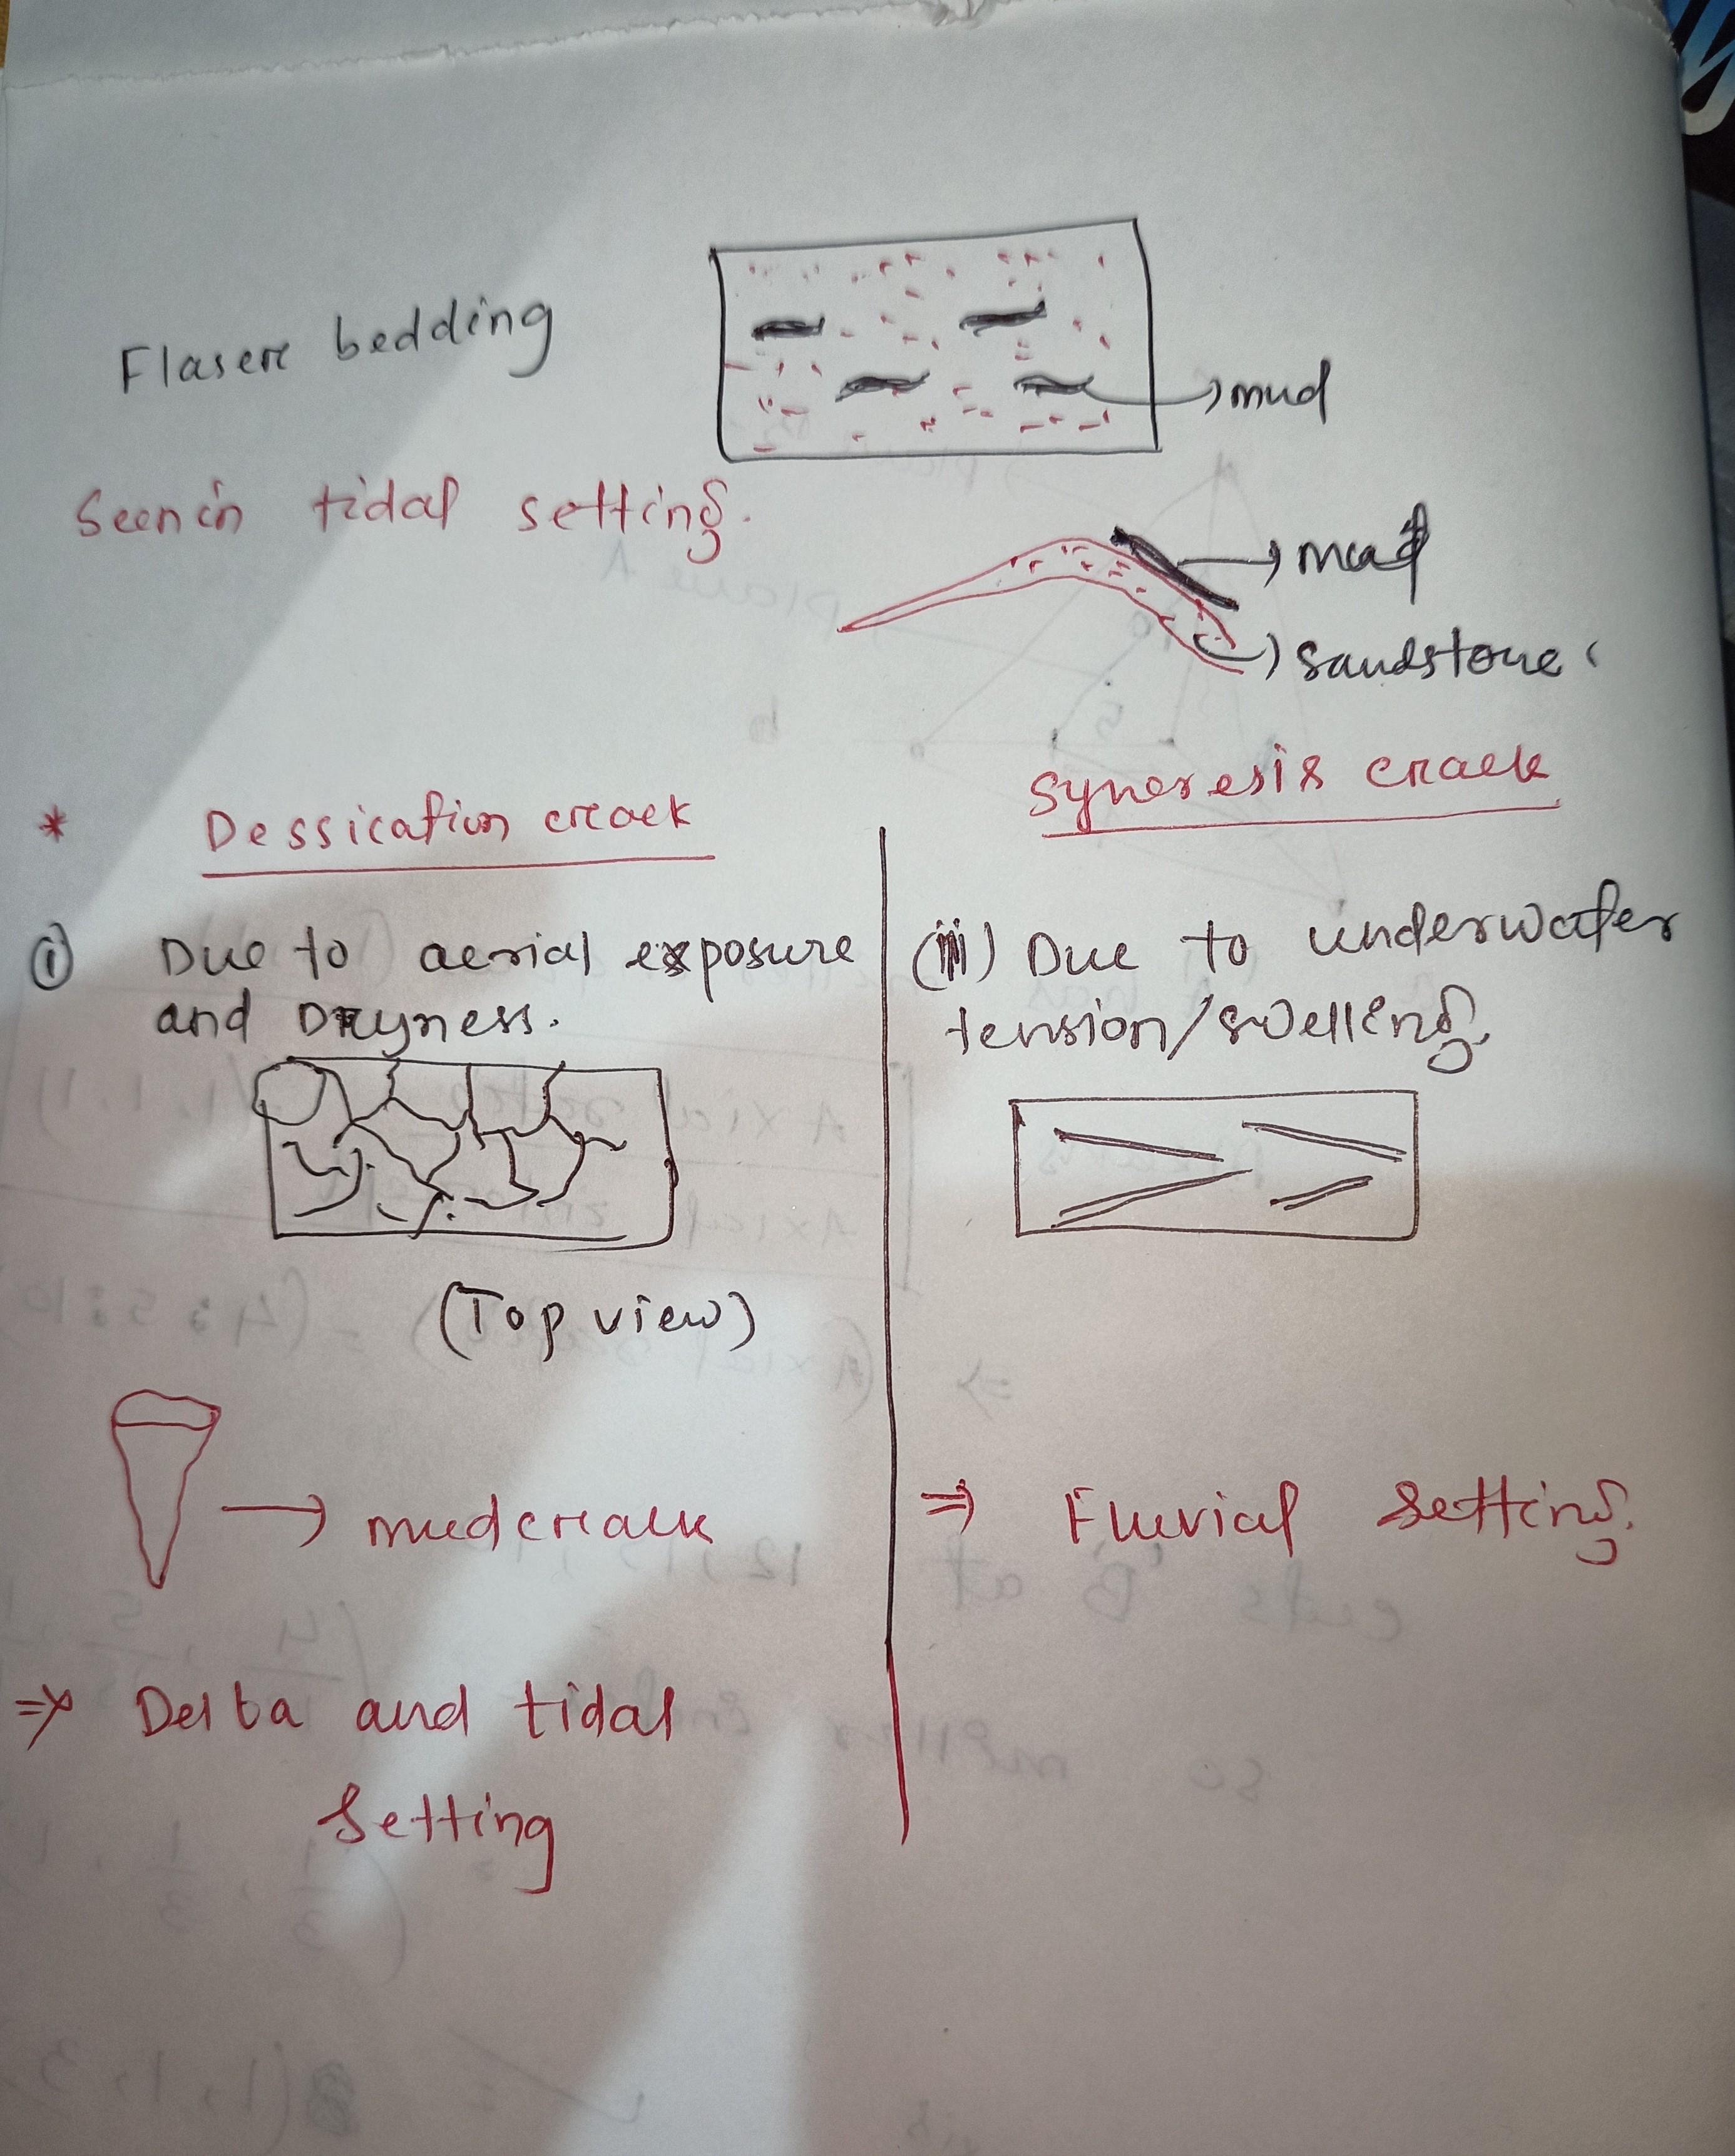 Flaser bedding
mud
Seen in tidal setting.
mud
sandstone
* Dessication crack
Syneresis crack
(i) Due to aerial exposure
and Dryness.
(ii) Due to underwater
tension/swelling.
(Top view)
mud crack
⇒ Fluvial setting.
⇒ Delta and tidal
setting